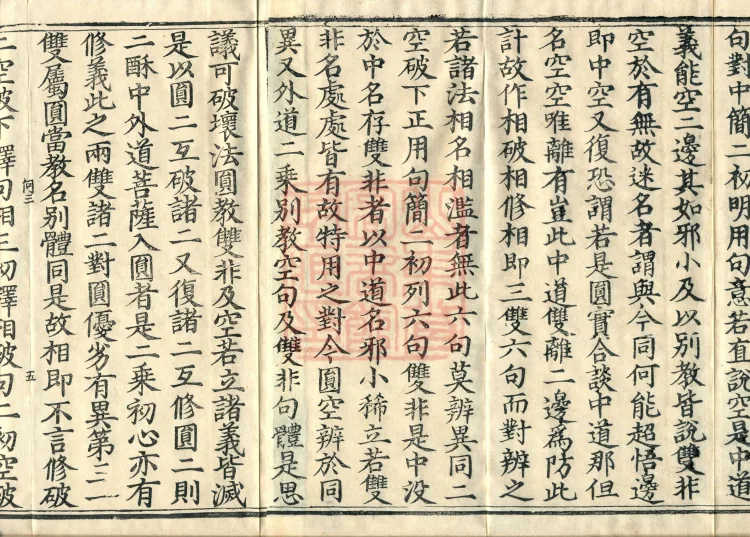 句對中簡二初明用句意若直說空是中道
義能空二邊其如邪小及以別教皆說雙非
空於有無故迷名者謂與今同何能超悟邊
即中空又復恐謂若是圓實合談中道那但
名空空唯離有豈此中道雙離二邊為防此
計故作相破相修相即三雙六句而對辨之
若諸法相名相濫者無此六句莫辨異同二
空破下正用句簡二初列六句雙非是中没
於中名存雙非者以中道名邪小稀立若雙
非名處處皆有故特用之對今圓空辨於同
異又外道二乘別教空句及雙非句體是思
議可破壞法圓教雙非及空若立諸義皆滅
是以圓二互破諸二又復諸二互修圓二則
二酥中外道菩薩入圓者是二乘初心亦有
修義此之兩雙諸二對圓優劣有異第三二
雙屬圓當教名別體同是故相即不言修破
何三
五
二空破下釋句相三初釋相破句二初空破